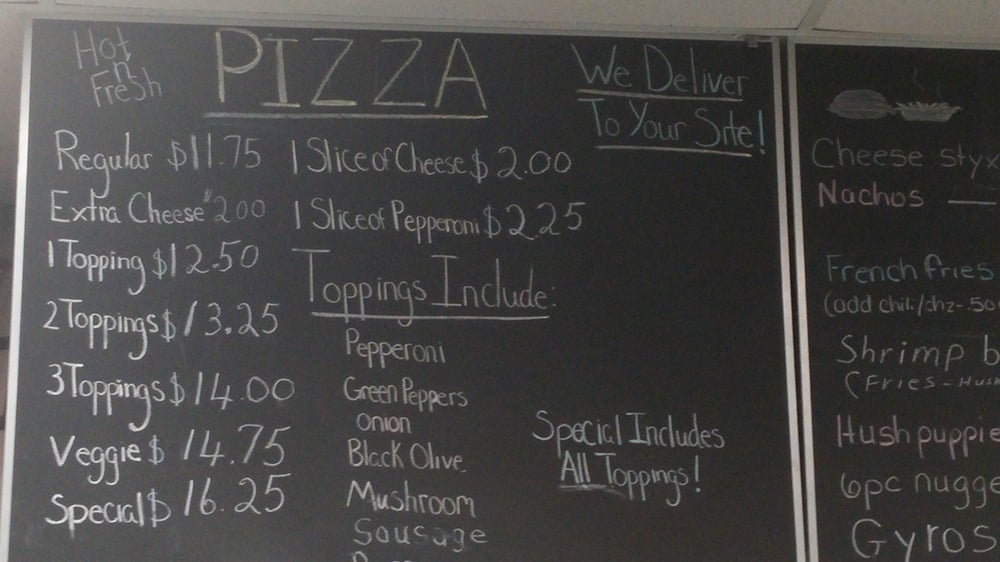 Hot
n
Fresh
PIZZA
We Deliver
To Your Site!
Regular $11.75
Extra Cheese $2.00
1 Topping $12.50
2 Toppings $13.25
3 Toppings $14.00
Veggie $14.75
Special $16.25
1 Slice of Cheese $2.00
1 Slice of Pepperoni $2.25
Toppings Include:
Pepperoni
Green Peppers
Onion
Black Olive
Mushroom
Sausage
Special Includes
All Toppings!
Cheese styx
Nachos
French fries
(add chili/chz-.50
Shrimp b
(Fries-Hush
Hush puppie
6pc nugge
Gyros